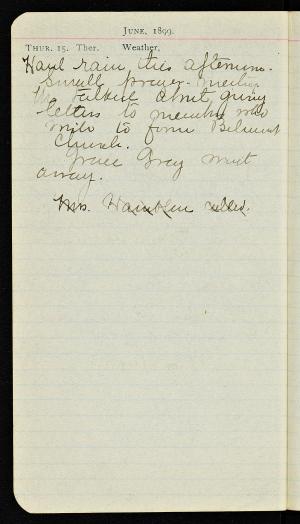 JUNE, 1899.
THUR. 15. Ther. Weather,
Hard rain this afternoon.
Small prayer-meeting
We talked about giving
letters to members who
wish to form Belmont
Church.
Grace Gray went
away.
Mrs. Hamblen called.